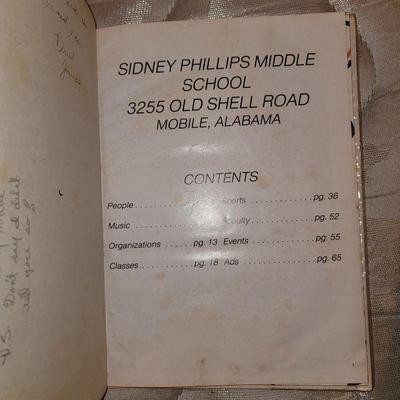 SIDNEY PHILLIPS MIDDLE
SCHOOL
3255 OLD SHELL ROAD
MOBILE, ALABAMA
CONTENTS
People . . . . . . . . . . . . Sports . . . . . . . . . . . . . . pg. 36
Music . . . . . . . . . . . . . . . . . . . . . . . . . . pg. 52
Organizations . . . . . . pg. 13 Events . . . . . . . . . . . . . . pg. 55
Classes . . . . . . . . . . . pg. 18 Ads . . . . . . . . . . . . . . . . pg. 65
P.S. Don't say I didn't